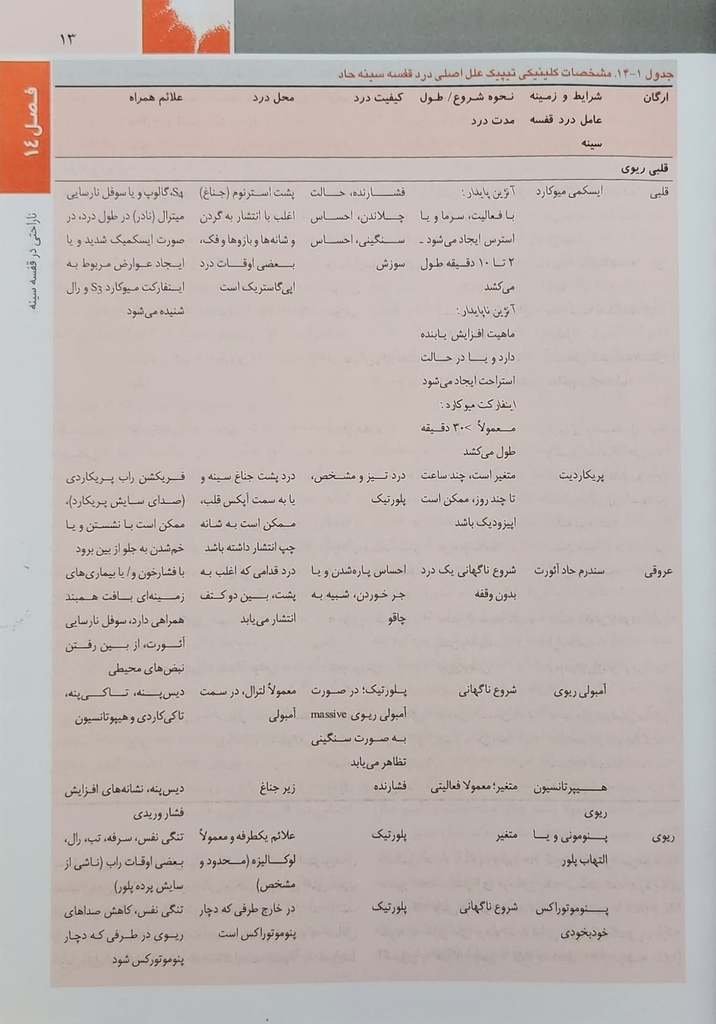 ۱۳
فصل ۱۴
ناراحتی در قفسه سینه
جدول ۱-۱۴. مشخصات کلینیکی تیپیک علل اصلی درد قفسه سینه حاد
ارگان
شرایط و زمینه
عامل درد قفسه
سینه
نحوه شروع/ طول
مدت درد
کیفیت درد
محل درد
علائم همراه
قلبی ریوی
قلبی
ایسکمی میوکارد
آنژین پایدار:
با فعالیت، سرما و یا
استرس ایجاد می‌شود ـ
۲ تا ۱۰ دقیقه طول
می‌کشد
آنژین ناپایدار:
ماهیت افزایش یابنده
دارد و یا در حالت
استراحت ایجاد می‌شود
اینفارکت میوکارد:
معمولاً >۳۰ دقیقه
طول می‌کشد
فشارنده، حالت
چلاندن، احساس
سنگینی، احساس
سوزش
پشت استرنوم (جناغ)
اغلب با انتشار به گردن
و شانه‌ها و بازوها و فک،
بعضی اوقات درد
اپی‌گاستریک است
S4، گالوپ و یا سوفل نارسایی
میترال (نادر) در طول درد، در
صورت ایسکمیک شدید و یا
ایجاد عوارض مربوط به
اینفارکت میوکارد S3 و رال
شنیده می‌شود
پریکاردیت
متغیر است، چند ساعت
تا چند روز، ممکن است
اپیزودیک باشد
درد تیز و مشخص،
پلورتیک
درد پشت جناغ سینه و
یا به سمت آپکس قلب،
ممکن است به شانه
چپ انتشار داشته باشد
فریکشن راب پریکاردی
(صدای سایش پریکارد)،
ممکن است با نشستن و یا
خم‌شدن به جلو از بین برود
عروقی
سندرم حاد آئورت
شروع ناگهانی یک درد
بدون وقفه
احساس پاره‌شدن و یا
جر خوردن، شبیه به
چاقو
درد قدامی که اغلب به
پشت، بین دو کتف
انتشار می‌یابد
با فشارخون و/ یا بیماری‌های
زمینه‌ای بافت همبند
همراهی دارد، سوفل نارسایی
آئورت، از بین رفتن
نبض‌های محیطی
آمبولی ریوی
شروع ناگهانی
پلورتیک؛ در صورت
آمبولی ریوی massive
به صورت سنگینی
تظاهر می‌یابد
معمولاً لترال، در سمت
آمبولی
دیس‌پنه، تاکی‌پنه،
تاکی‌کاردی و هیپوتانسیون
هیپرتانسیون
ریوی
متغیر؛ معمولا فعالیتی
فشارنده
زیر جناغ
دیس‌پنه، نشانه‌های افزایش
فشار وریدی
ریوی
پنومونی و یا
التهاب پلور
متغیر
پلورتیک
علائم یکطرفه و معمولاً
لوکالیزه (محدود و
مشخص)
تنگی نفس، سرفه، تب، رال،
بعضی اوقات راب (ناشی از
سایش پرده پلور)
پنوموتوراکس
خودبخودی
شروع ناگهانی
پلورتیک
در خارج طرفی که دچار
پنوموتوراکس است
تنگی نفس، کاهش صداهای
ریوی در طرفی که دچار
پنوموتورکس شود